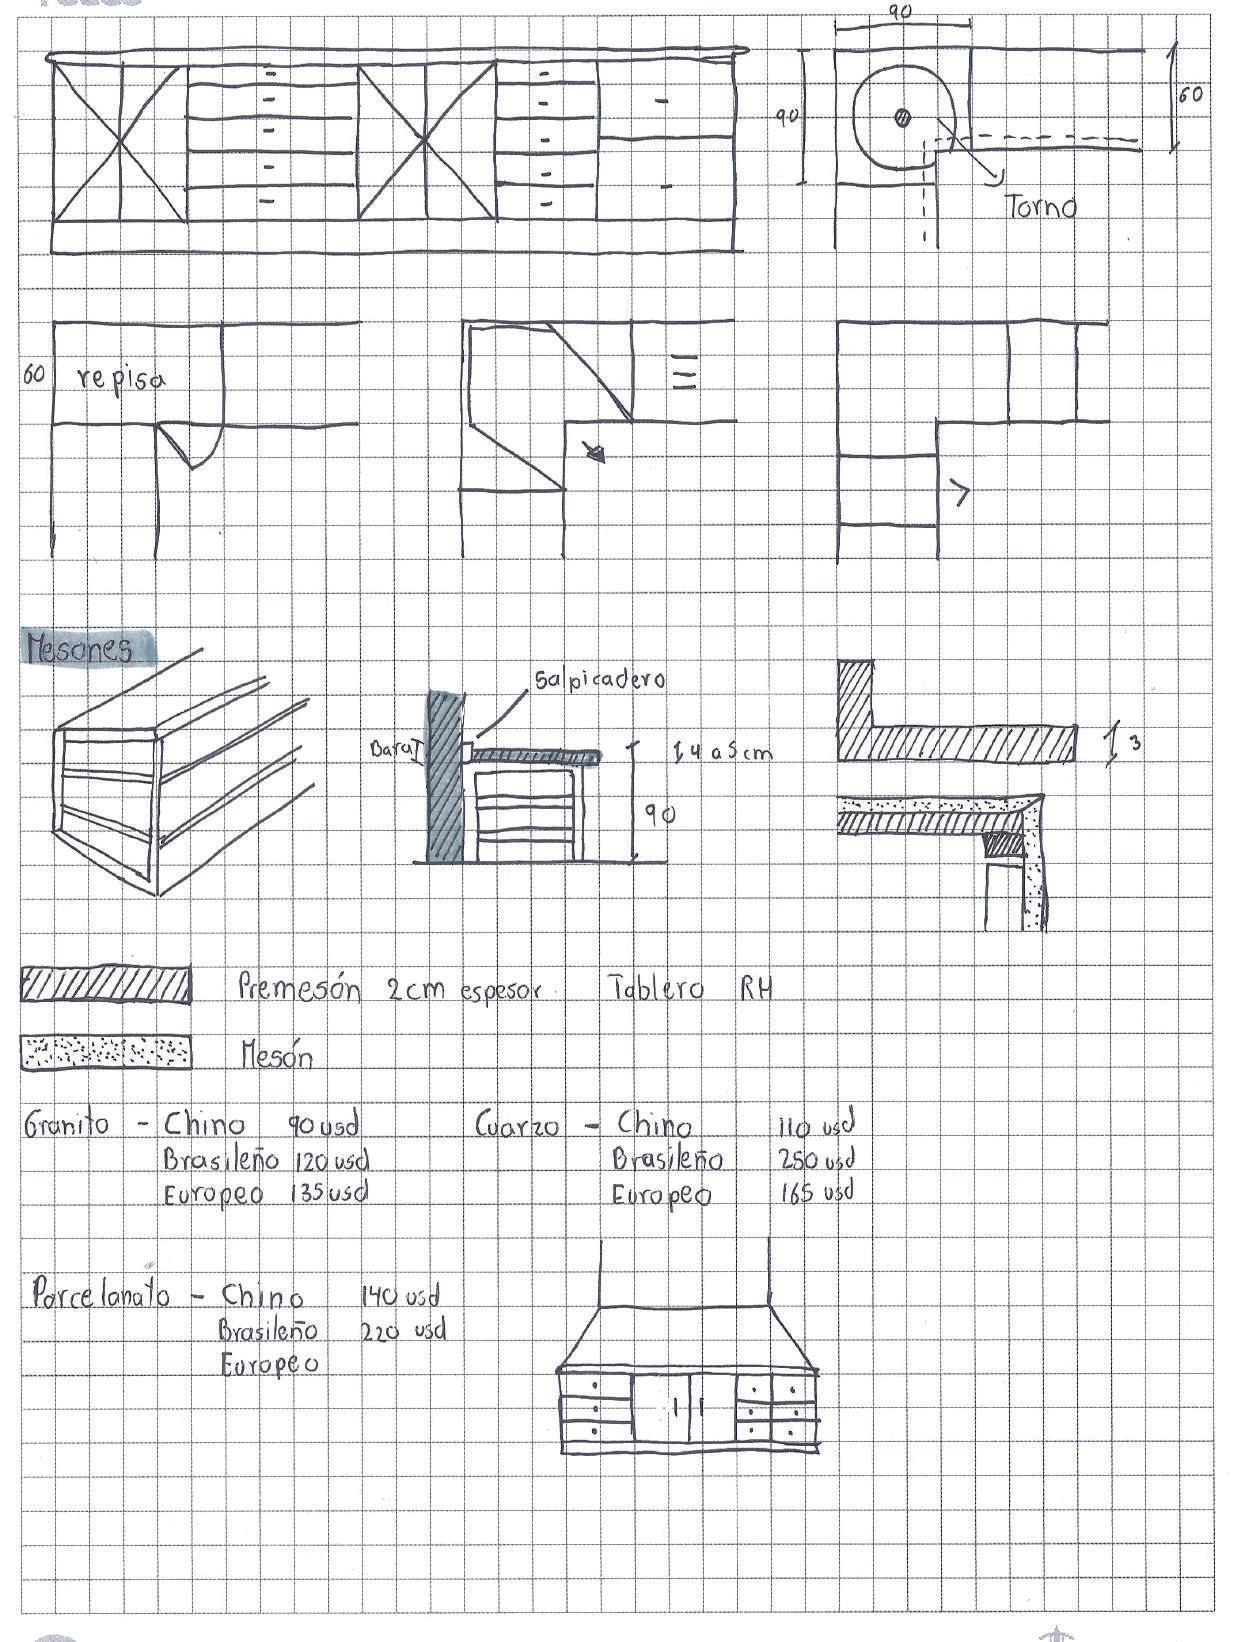 90
90
60
Torno
60
repisa
Mesones
Salpicadero
4 a 5cm
3
90
Premesón 2cm espesor Tablero RH
Mesón
Granito - Chino 90 usd
Brasileño 120 usd
Europeo 135 usd
Cuarzo - Chino 110 usd
Brasileño 250 usd
Europeo 165 usd
Porcelanato - Chino 140 usd
Brasileño 220 usd
Europeo